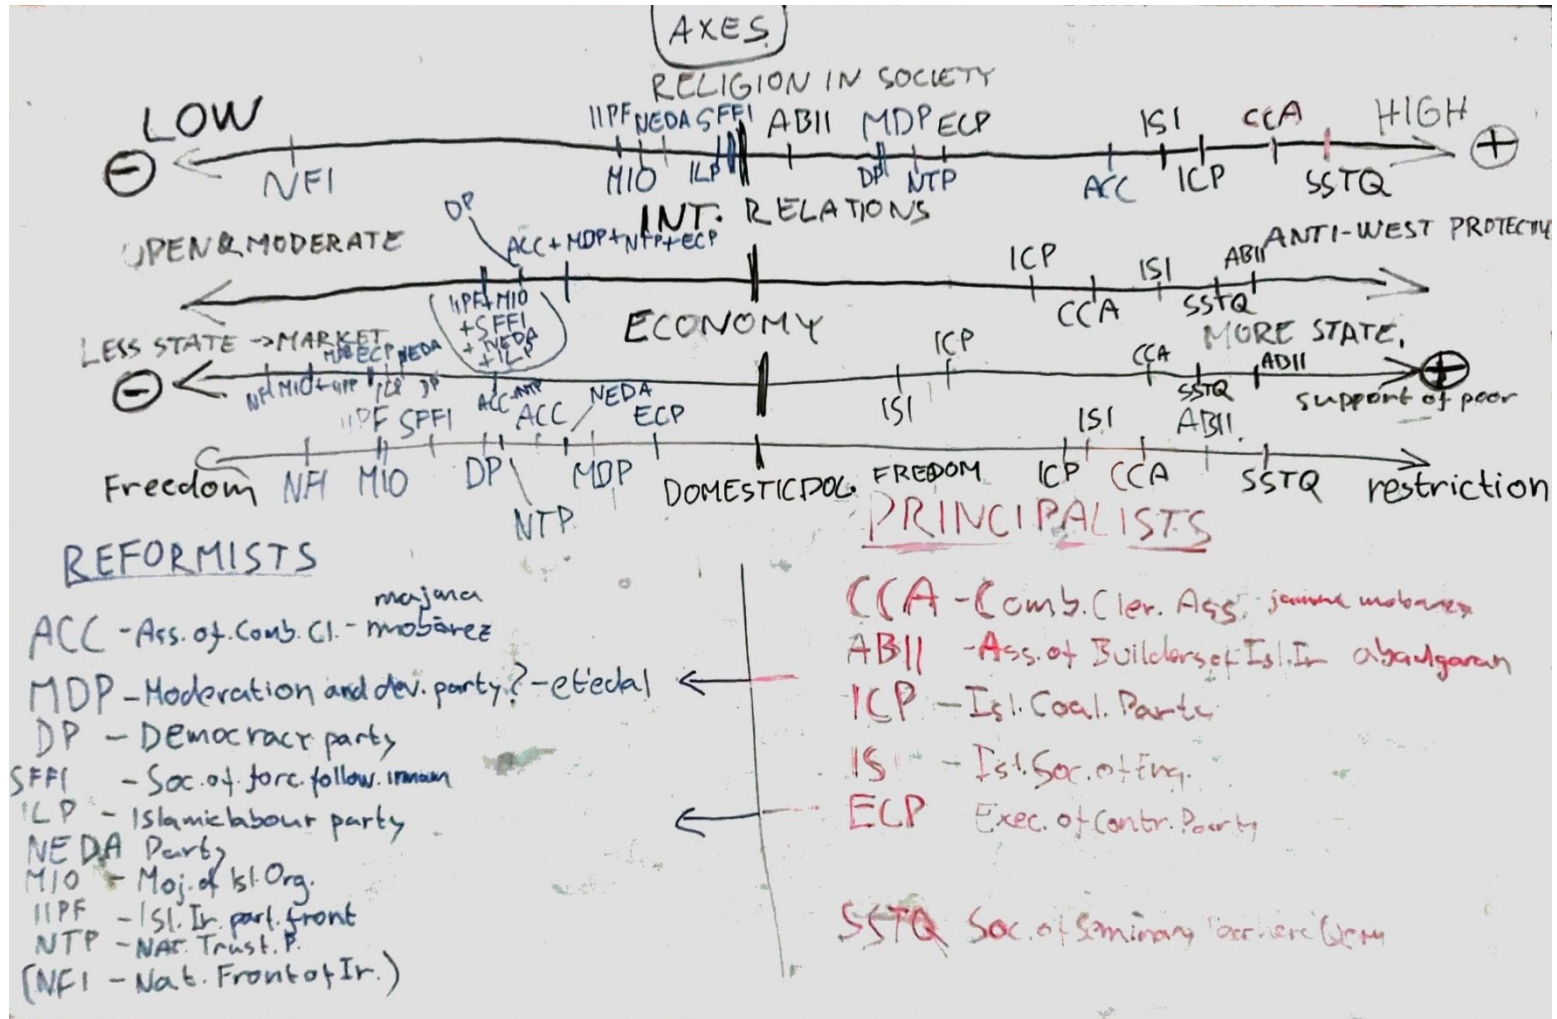 AXES
RELIGION IN SOCIETY
LOW HIGH
IIPF NEDA SFFI ABII MDP ECP ISI CCA
NFI MIO ILP DP NTP ACC ICP SSTQ
INT. RELATIONS
OPEN & MODERATE ANTI-WEST PROTECTIV
DP ACC+MDP+NTP+ECP ICP ISI ABII
IIPF+MIO CCA SSTQ
+SFFI
+NEDA
+ILP
ECONOMY
LESS STATE → MARKET MORE STATE.
ECP NEDA ICP CCA ABII
NFI MIO+IIPF ILP DP ACC NTP ISI SSTQ support of poor
IIPF SFFI ACC NEDA ECP ISI ABII
Freedom NFI MIO DP MDP DOMESTIC POL. FREEDOM ICP CCA SSTQ restriction
NTP
REFORMISTS
ACC - Ass. of. Comb. Cl. - majma mobārez
MDP - Moderation and dev. party? - etedal
DP - Democracy party
SFFI - Soc. of. forc. follow. imam
ILP - Islamic labour party
NEDA Party
MIO - Moj. of Isl. Org.
IIPF - Isl. Ir. part. front
NTP - Nat. Trust. P.
(NFI - Nat. Front of Ir.)
PRINCIPALISTS
CCA - Comb. Cler. Ass.
ABII - Ass. of Builders of Isl. Ir abadgaran
ICP - Isl. Coal. Party
ISI - Isl. Soc. of Eng.
ECP Exec. of Contr. Party
SSTQ Soc. of Seminary Qom